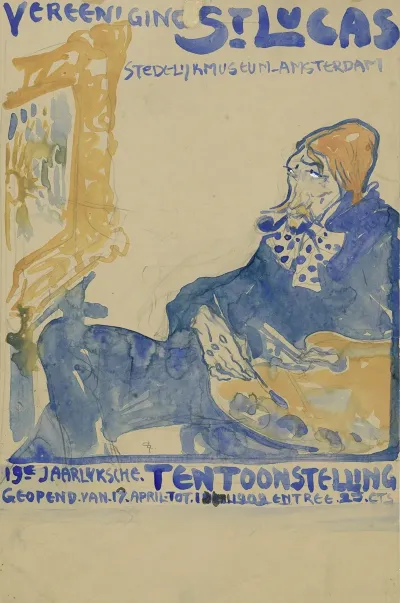 VEREENIGING ST LUCAS
STEDELIJKMUSEUM-AMSTERDAM
19E JAARLYKSCHE. TENTOONSTELLING
GEOPEND.VAN.17.APRIL.TOT. 1909 ENTREE.25.CTS